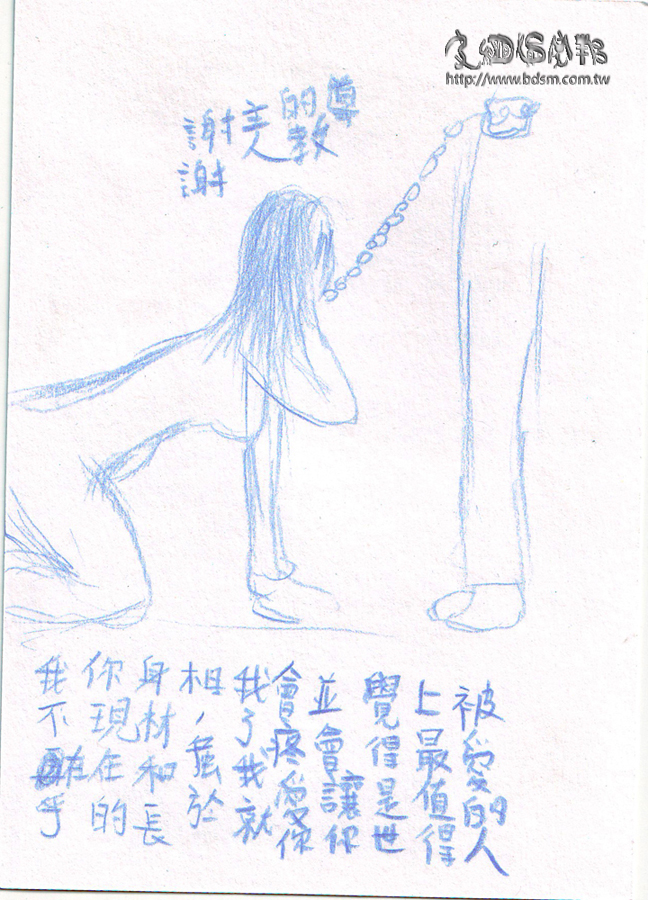 http://www.bdsm.com.tw
謝謝
主人
的教
導
我不在乎
你現在的
身材和長
相，於
我了我就
會疼愛你
並會讓你
覺得是世
上最值得
被愛的人